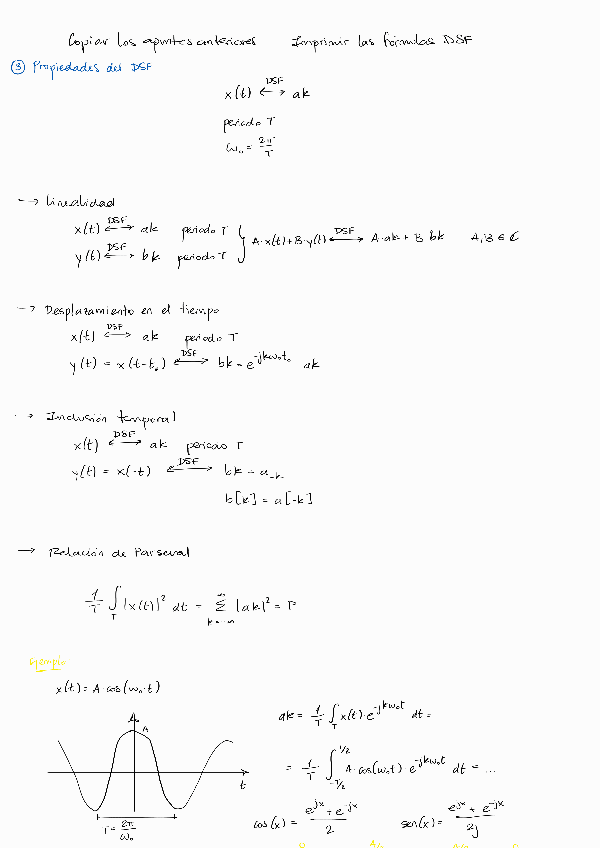 Copiar los apuntes anteriores Imprimir las fórmulas DSF
③ Propiedades del DSF
x(t) <-DSF-> ak
periodo T
ω₀ = 2π/T
--> Linealidad
x(t) <-DSF-> ak periodo T
y(t) <-DSF-> bk periodo T } A·x(t)+B·y(t) <-DSF-> A·ak + B bk A,B ∈ C
--> Desplazamiento en el tiempo
x(t) <-DSF-> ak periodo T
y(t) = x(t-t₀) <-DSF-> bk = e^-jkω₀t₀ ak
--> Inclusión temporal
x(t) <-DSF-> ak periodo T
y(t) = x(-t) <-DSF-> bk = a₋k
b[k] = a[-k]
--> Relación de Parseval
1/T ∫_T |x(t)|² dt = Σ_{k=-∞}^{∞} |ak|² = P
Ejemplo
x(t) = A·cos(ω₀·t)
A
t
T = 2π/ω₀
ak = 1/T ∫_T x(t)·e^-jkω₀t dt =
= 1/T ∫_{-T/2}^{T/2} A·cos(ω₀t)·e^-jkω₀t dt = ...
cos(x) = (e^jx + e^-jx)/2 sen(x) = (e^jx + e^-jx)/2j